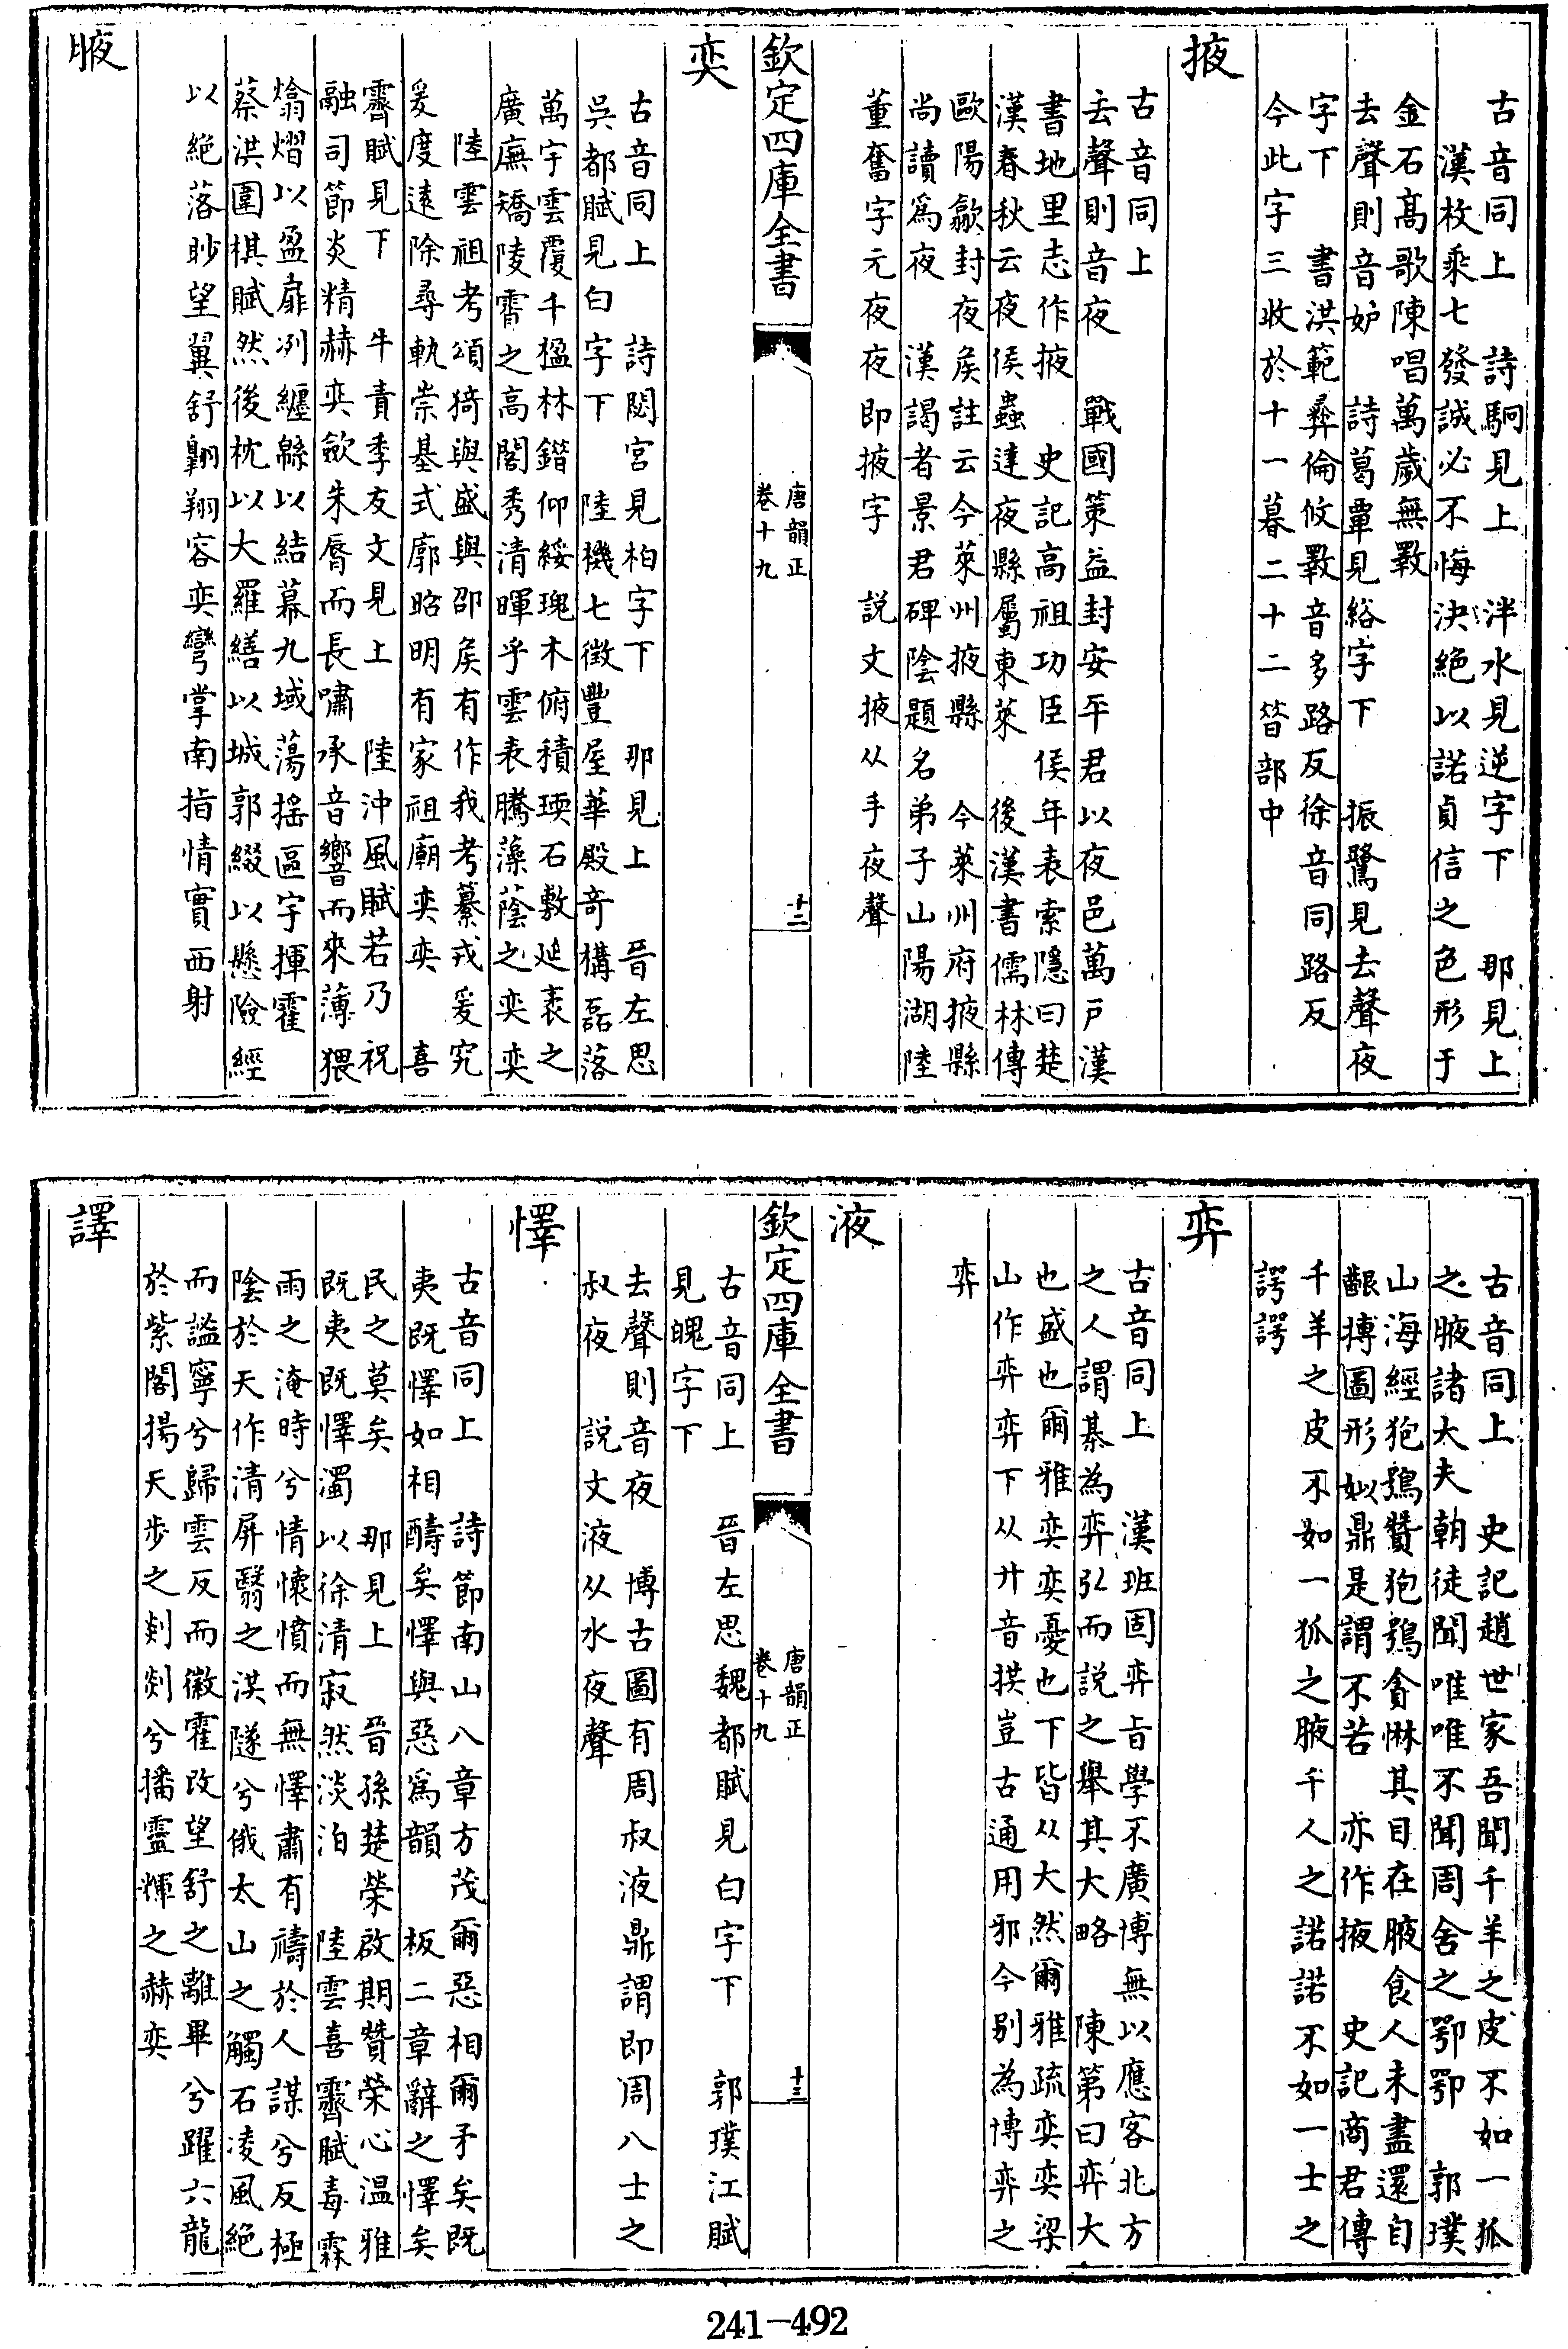 古音同上　詩駉見上　泮水見逆字下　那見上
漢枚乘七發誠必不悔決絕以諾貞信之色形于
金石高歌陳唱萬歲無斁
去聲則音妒　詩葛覃見綌字下　振鷺見去聲夜
字下　書洪範彝倫攸斁音多路反徐音同路反
今此字三收於十一暮二十二昔部中
掖
古音同上
去聲則音夜　戰國策益封安平君以夜邑萬戶漢
書地里志作掖　史記高祖功臣侯年表索隱曰楚
漢春秋云夜侯蟲達夜縣屬東萊　後漢書儒林傳
歐陽歙封夜侯註云今萊州掖縣　今萊州府掖縣
尚讀爲夜　漢謁者景君碑陰題名弟子山陽湖陸
董奮字元夜夜即掖字　說文掖从手夜聲
欽定四庫全書
唐韻正
卷十九
十二
奕
古音同上　詩閟宮見柏字下　那見上　晉左思
吳都賦見白字下　陸機七徵豐屋華殿奇構磊落
萬宇雲覆千楹林錯仰綏瑰木俯積瓀石敷延袤之
廣廡矯陵霄之高閣秀清暉乎雲表騰藻蔭之奕奕
陸雲祖考頌猗與盛與邵侯有作我考纂戎爰究
爰度遠除尋軌崇基式廓昭明有家祖廟奕奕　喜
霽賦見下　牛責季友文見上　陸沖風賦若乃祝
融司節炎精赫奕歙朱脣而長嘯承音響而來薄猥
熻熠以盈扉冽纏緜以結幕九域蕩搖區宇揮霍
蔡洪圍棋賦然後枕以大羅繕以城郭綴以懸險經
以絕落眇望翼舒翺翔容奕彎掌南指情實西射
腋
古音同上　史記趙世家吾聞千羊之皮不如一狐
之腋諸大夫朝徒聞唯唯不聞周舍之鄂鄂　郭璞
山海經狍鴞贊狍鴞貪惏其目在腋食人未盡還自
齦搏圖形妙鼎是謂不若　亦作掖　史記商君傳
千羊之皮不如一狐之腋千人之諾諾不如一士之
諤諤
弈
古音同上　漢班固弈旨學不廣博無以應客北方
之人謂棊為弈弘而說之舉其大略　陳第曰弈大
也盛也爾雅奕奕憂也下皆从大然爾雅疏奕奕梁
山作弈弈下从廾音拱豈古通用邪今别為博弈之
弈
液
欽定四庫全書
唐韻正
卷十九
十三
古音同上　晉左思魏都賦見白字下　郭璞江賦
見魄字下
去聲則音夜　博古圖有周叔液鼎謂即周八士之
叔夜　說文液从水夜聲
懌
古音同上　詩節南山八章方茂爾惡相爾矛矣既
夷既懌如相醻矣懌與惡爲韻　板二章辭之懌矣
民之莫矣　那見上　晉孫楚榮啟期贊榮心温雅
既夷既懌濁以徐清寂然淡泊　陸雲喜霽賦毒霖
雨之淹時兮情懷憤而無懌肅有禱於人謀兮反極
陰於天作清屏翳之洪隧兮俄太山之觸石凌風絕
而謐寧兮歸雲反而徽霍改望舒之離畢兮躍六龍
於紫閣揚天步之剡剡兮播靈輝之赫奕
譯
241-492